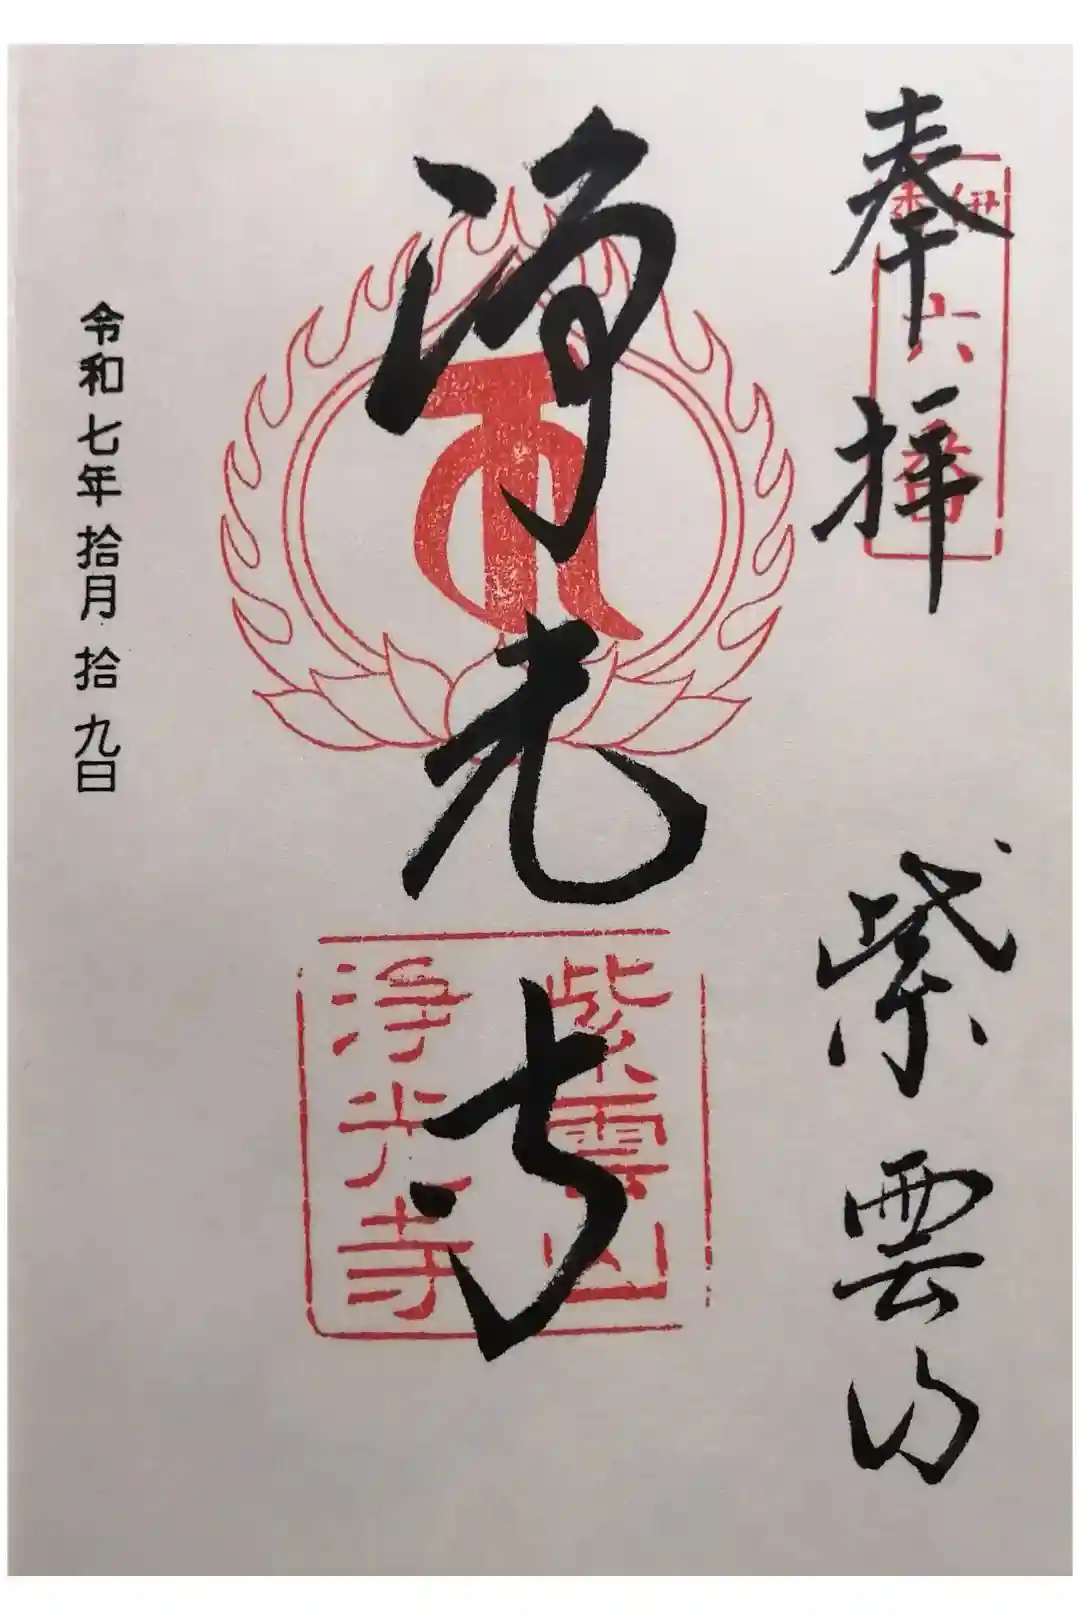 奉拝
紫雲山
六番
浄光寺
紫雲山
浄光寺
令和七年拾月拾九日